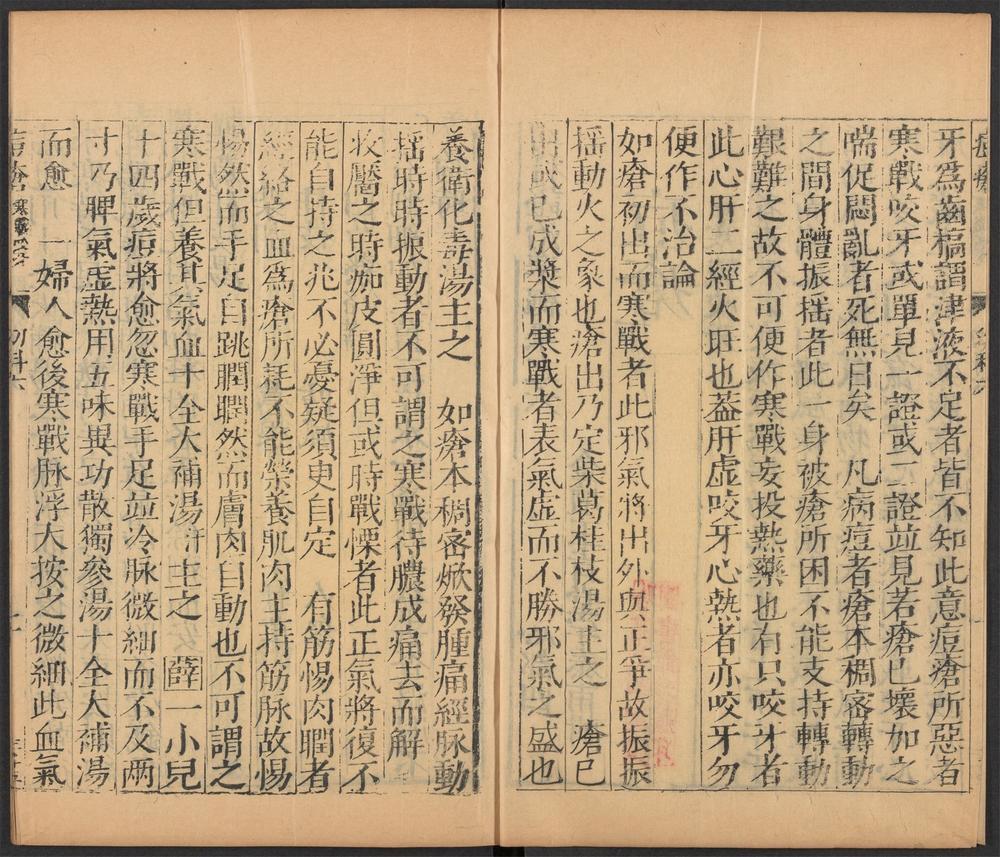 痘瘡
牙爲齒槁謂津液不足者皆不知此意痘瘡所惡者
寒戰咬牙或單見一證或二證並見若瘡已壞加之
喘促悶亂者死無日矣　凡病痘者瘡本稠密轉動
之間身體振搖者此一身被瘡所困不能支持轉動
艱難之故不可便作寒戰妄投熱藥也有只咬牙者
此心肝二經火旺也蓋肝虛咬牙心熱者亦咬牙勿
便作不治論
如瘡初出而寒戰者此邪氣將出外與正爭故振振
搖動火之象也瘡出乃定柴葛桂枝湯主之　瘡已
出或已成漿而寒戰者表氣虛而不勝邪氣之盛也
養衛化毒湯主之　如瘡本稠密焮發腫痛經脉動
搖時時振動者不可謂之寒戰待膿成痛去而解
收靨之時痂皮圓淨但或時戰慄者此正氣將復不
能自持之兆不必憂疑須臾自定　有筋惕肉瞤者
經絡之血爲瘡所耗不能榮養肌肉主持筋脉故惕
惕然而手足自跳瞤瞤然而膚肉自動也不可謂之
寒戰但養其氣血十全大補湯主之　薛一小兒
十四歲痘將愈忽寒戰手足竝冷脉微細而不及兩
寸乃脾氣虛熱用五味異功散獨參湯十全大補湯
而愈　一婦人愈後寒戰脉浮大按之微細此血氣
痘瘡